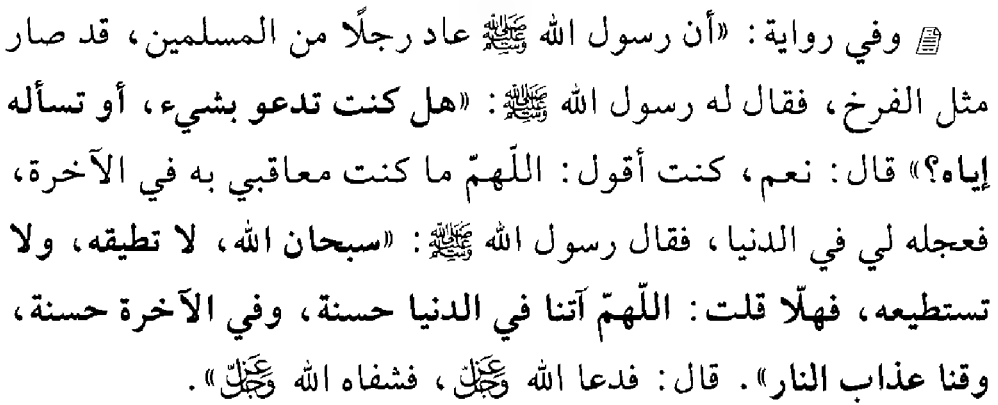 وفي رواية: «أن رسول الله ﷺ عاد رجلًا من المسلمين، قد صار
مثل الفرخ، فقال له رسول الله ﷺ: «هل كنت تدعو بشيء، أو تسأله
إياه؟» قال: نعم، كنت أقول: اللّهمّ ما كنت معاقبي به في الآخرة،
فعجله لي في الدنيا، فقال رسول الله ﷺ: «سبحان الله، لا تطيقه، ولا
تستطيعه، فهلّا قلت: اللّهمّ آتنا في الدنيا حسنة، وفي الآخرة حسنة،
وقنا عذاب النار». قال: فدعا الله عَزَّوَجَلَّ، فشفاه الله عَزَّوَجَلَّ».